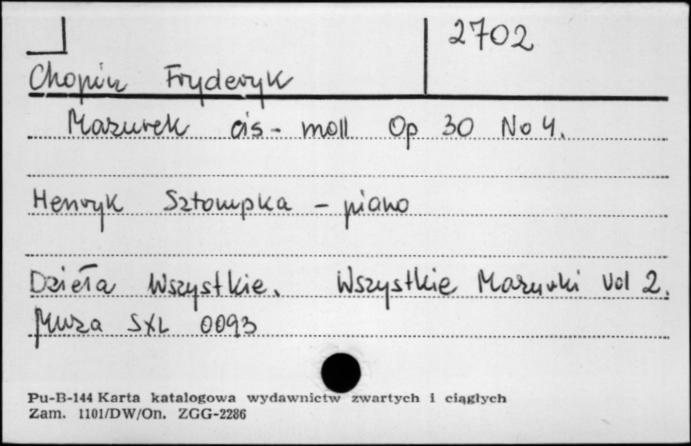 2702
Chopin Fryderyk
Mazurek cis-moll Op 30 No 4.
Henryk Sztompka - piano
Dzieła Wszystkie. Wszystkie Mazurki vol 2.
Muza SXL 0093
Pu-B-144 Karta katalogowa wydawnictw zwartych i ciągłych
Zam. 1101/DW/On. ZGG-2286